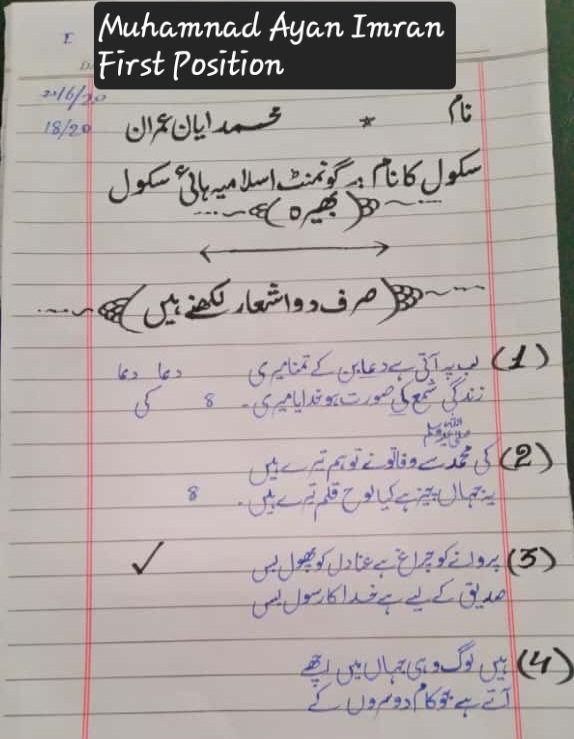 Muhamnad Ayan Imran
First Position
I
20/6/20
18/20
نام * محمد ایان عمران
سکول کا نام :۔ گونمنٹ اسلامیہ ہائی سکول
(بھیرہ)
(صرف دو اشعار لکھنے ہیں)
(1) لب پہ آتی ہے دعا بن کے تمنا میری دعا دعا
زندگی شمع کی صورت ہو خدایا میری۔ 8 کی
ﷺ
(2) کی محمد سے وفا تو نے تو ہم تیرے ہیں
یہ جہاں چیز ہے کیا لوح قلم تیرے ہیں۔ 8
(3) پروانے کو چراغ ہے عنادل کو پھول بس ✓
صدیق کے لیے ہے خدا کا رسول بس
(4) ہیں لوگ وہی جہاں میں اچھے
آتے ہے جو کام دوسروں کے